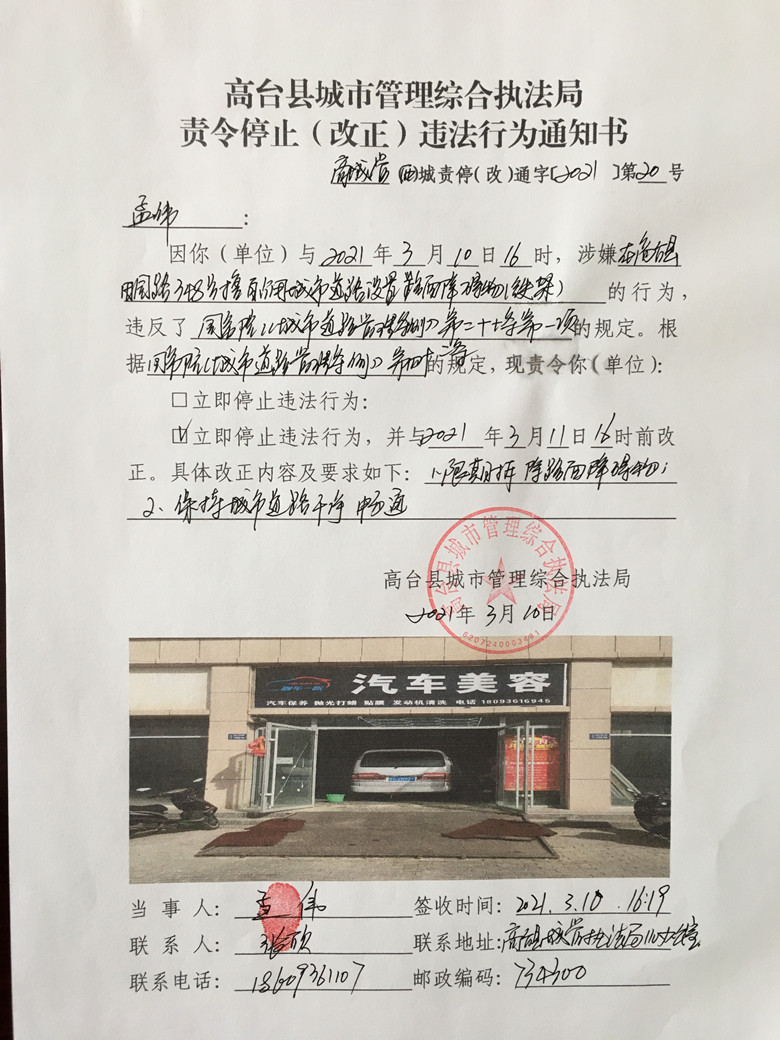 高台县城市管理综合执法局
责令停止（改正）违法行为通知书
高城管(四)城责停(改)通字[2021]第20号
孟伟：
因你（单位）与2021年3月10日16时，涉嫌在高台县
国路348号擅自占用城市道路设置路面障碍物(铁架)的行为，
违反了国务院《城市道路管理条例》第二十七条第一项的规定。根
据国务院《城市道路管理条例》第四十二条的规定，现责令你（单位）：
□立即停止违法行为：
☑立即停止违法行为，并与2021年3月11日16时前改
正。具体改正内容及要求如下：1、限期拆除路面障碍物；
2、保持城市道路干净畅通
高台县城市管理综合执法局
2021年3月10日
高台县城市管理综合执法局
6207240003491
汽车美容
汽车保养 抛光打蜡 贴膜 发动机清洗 电话18093616945
当事人：孟伟 签收时间：2021.3.10 16:19
联系人：张欣 联系地址：高台县城管执法局
联系电话：18609361107 邮政编码：734300